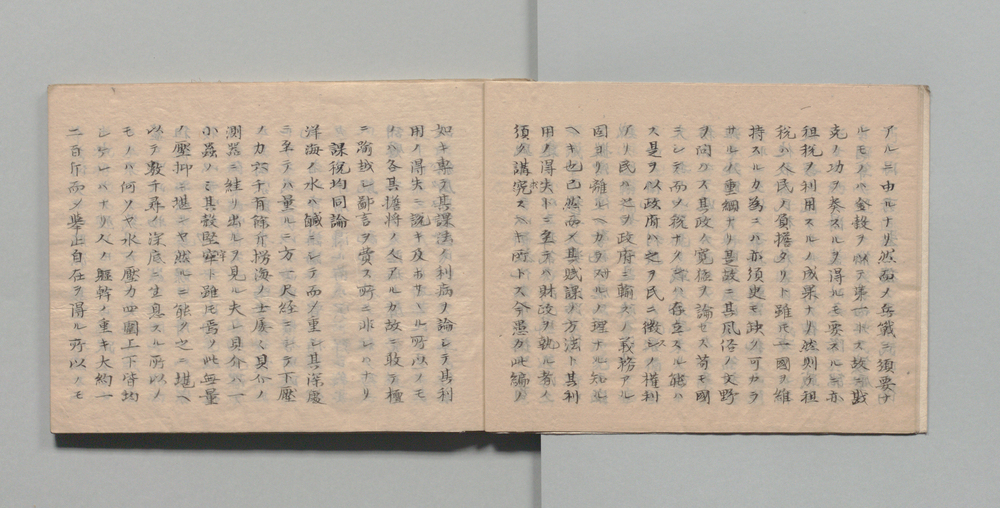 アルニ由ルナリ然而ノ兵餓ニ須要ナ
ルモノハ金穀ヲ以テ第一トス故ニ戦
克ノ功ヲ奏スルヲ得ルモ要スルニ亦
租税ノ利用スルノ成果ナリ然則チ租
税ハ人民ノ負擔タリト雖モ一國ヲ維
持スルカ為ニハ亦須臾モ缺ク可カラ
サルノ重綱ナリ是故ニ其風俗ノ文野
ヲ問ハス其政ノ寛猛ヲ論セス苟モ國
ニシテ而ノ税ナクシハ存立スル能ハ
ス是ヲ以政府ハ之ヲ民ニ徴スノ權利
アリ民ハ之ヲ政府ニ輸スノ義務アル
固ヨリ離ルヘカラサルノ理ナル知ル
ヘキ也已然而ノ其賦課ノ方法ト其利
用ノ得失トニ至テハ財政ヲ執ル者ノ
須ク講究スヘキ所トス今愚カ此編ノ
如キ専ラ其課法ノ利病ヲ論シテ其利
用ノ得失ニ説キ及ホサヽル所以ノモ
ノハ各其擔將ノ人アルカ故ニ敢テ檀
ニ踰越シ鄙言ヲ費スノ所ニ非レハナリ
課税均同論
洋海ノ水ハ鹹ニシテ而ノ重シ其深處
ニ至テハ量ルニ方一尺経ニシテ下壓
ノ力六千有餘斤撈海ノ士屡く貝介ノ
測器ニ絓リ出ルヲ見ル夫レ貝介ハ一
小蟲ノミ其殻堅牢ト雖モ焉ソ此無量
ノ壓抑ニ堪ヘンヤ然ルニ能ク之ニ堪ヘ
以テ數千尋ノ深底ニ生息スル所以ノ
モノハ何ソヤ水ノ壓力四圍上下皆均
シケレハナリ人ノ軀幹ノ重キ大約一
二百斤而ノ擧止自在ヲ得ル所以ノモ